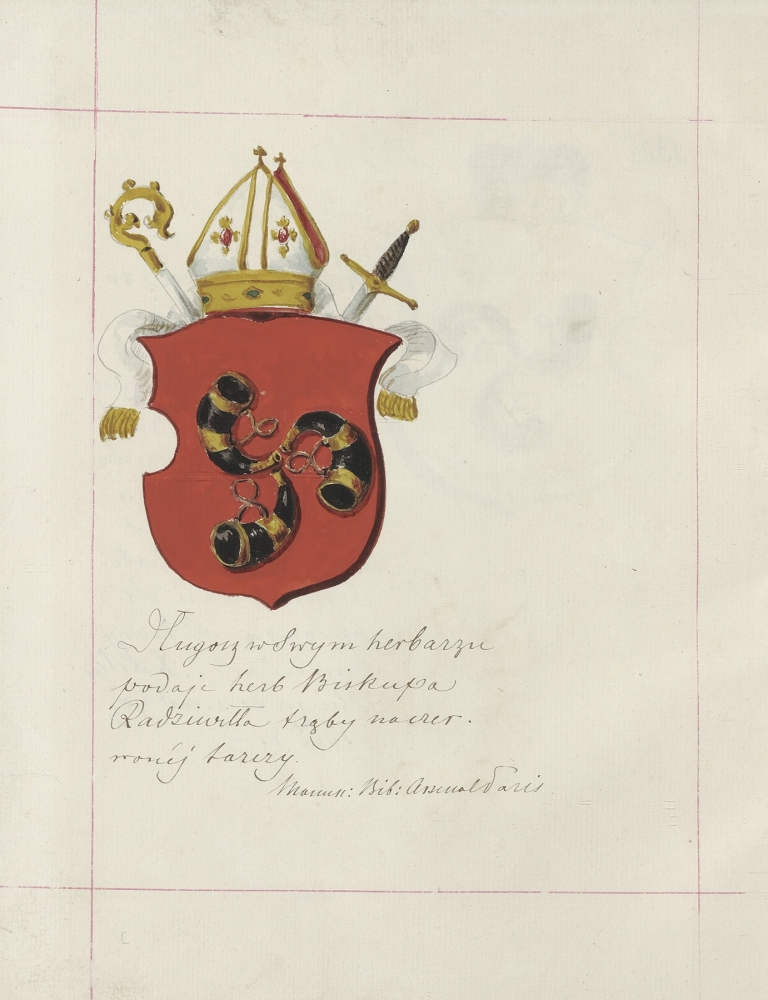 Długosz w swym herbarzu
podaje herb Biskupa
Radziwiłła trąby na czer.
wonéj tarczy.
Manus: Bib: Arsenal Paris